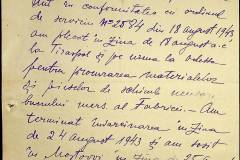 în conformitate cu ordinul
de serviciu No 2584 din 18 august 1943
am plecat în ziua de 18 august a.c.
la Tiraspol și pe urmă la Odessa
pentru procurarea materialelor
și pieselor de schimb
bunului mers al Fabricei. - Am
terminat însărcinarea în ziua
de 24 august 1943 și am sosit
în Mostovoi în ziua de 25